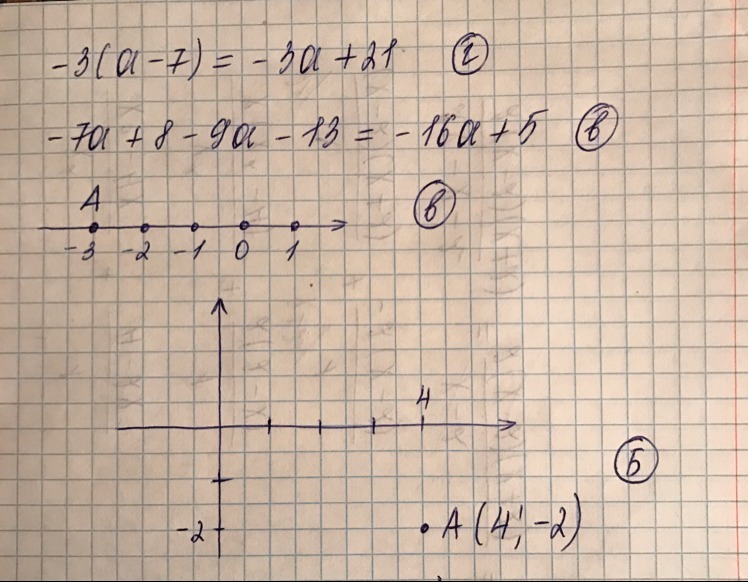 -3(a-7) = -3a+21 г
-7a+8-9a-13 = -16a+5 в
A в
-3 -2 -1 0 1
4
Б
-2 A(4;-2)